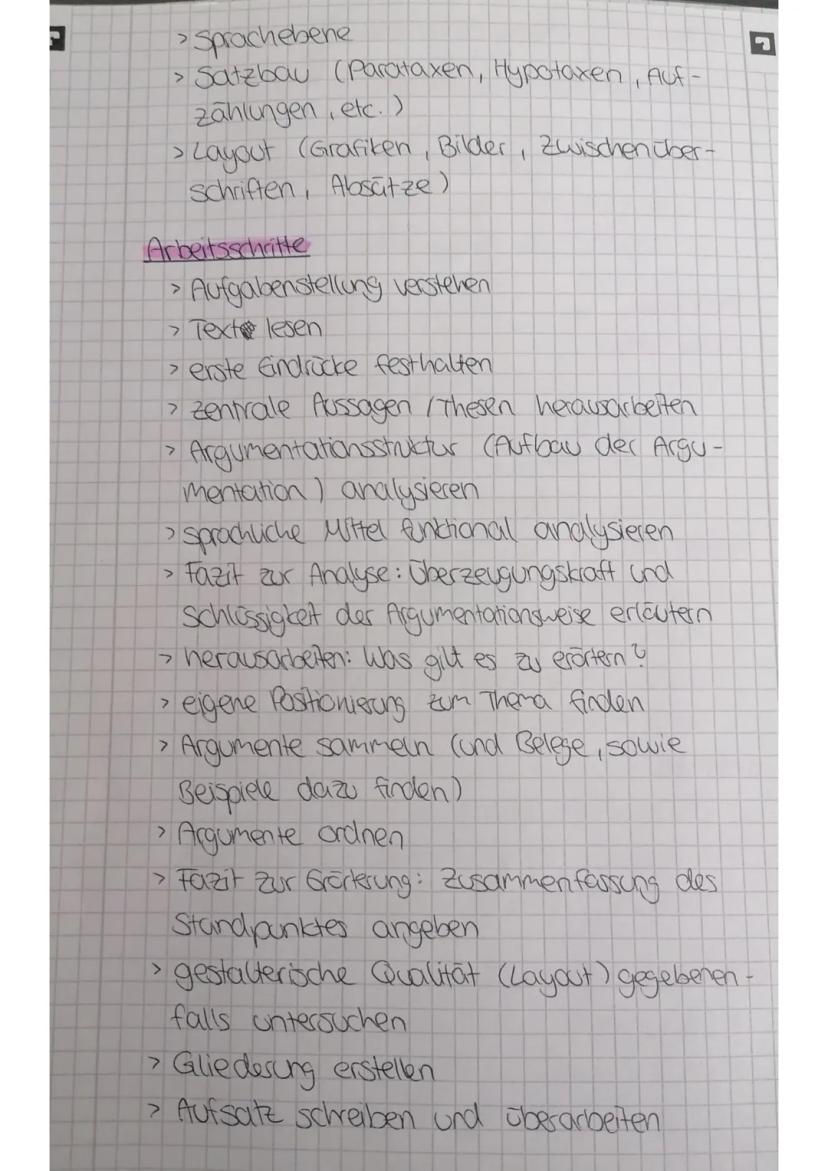 > Sprachebene
> Satzbau (Parataxen, Hypotaxen, Auf-
zählungen, etc.)
> Layout (Grafiken, Bilder, Zwischenüber-
schriften, Absätze)
Arbeitsschritte
> Aufgabenstellung verstehen
> Text lesen
> erste Eindrücke festhalten
> zentrale Aussagen / Thesen herausarbeiten
> Argumentationsstruktur (Aufbau der Argu-
mentation) analysieren
> sprachliche Mittel funktional analysieren
> Fazit zur Analyse: Überzeugungskraft und
Schlüssigkeit der Argumentationsweise erläutern
> herausarbeiten: Was gilt es zu erörtern?
> eigene Positionierung zum Thema finden
> Argumente sammeln (und Belege, sowie
Beispiele dazu finden)
> Argumente ordnen
> Fazit zur Erörterung: Zusammenfassung des
Standpunktes angeben
> gestalterische Qualität (Layout) gegebenen-
falls untersuchen
> Gliederung erstellen
> Aufsatz schreiben und überarbeiten